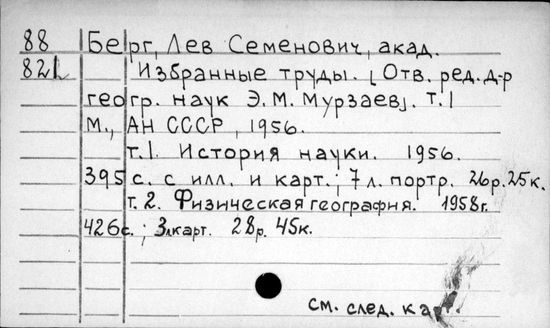 88 Берг, Лев Семенович, акад.
82 Избранные труды. [Отв. ред. д-р
геогр. наук Э. М. Мурзаев]. т. 1
М., АН СССР, 1956.
т. 1. История науки. 1956.
395 с. с илл. и карт.; 7 л. портр. 26р. 25к.
т. 2. Физическая география. 1958г.
426с.; 3л карт. 28р. 45к.
см. след.